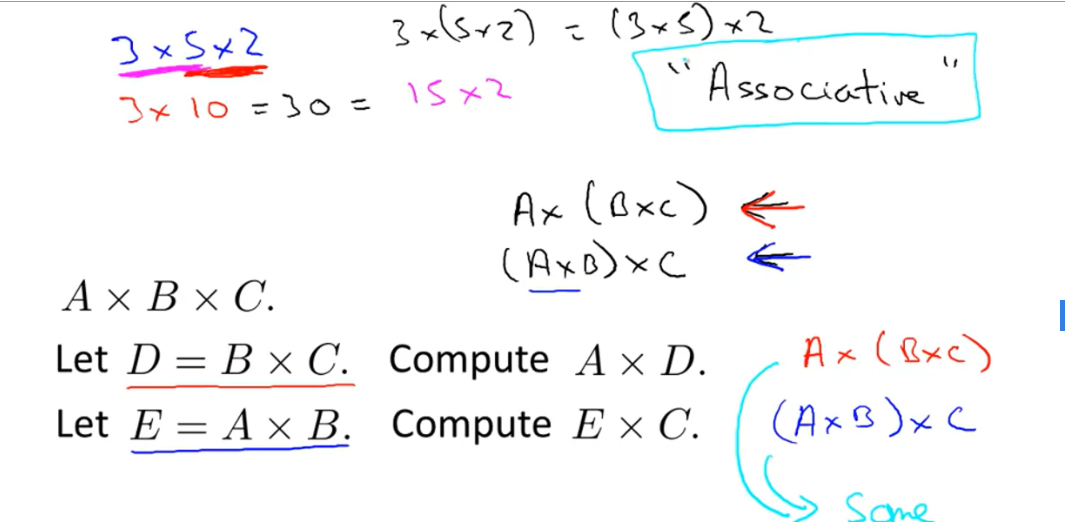 3 × 5 × 2
3 × (5 × 2) = (3 × 5) × 2
3 × 10 = 30 = 15 × 2
"Associative"
A × (B × C)
(A × B) × C
A × B × C.
Let D = B × C. Compute A × D.
A × (B × C)
Let E = A × B. Compute E × C.
(A × B) × C
Same